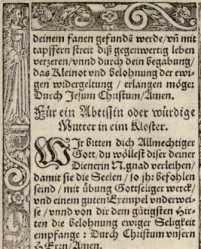 deinem fanen gefundē werde/vñ mit
tapfferm streit diß gegenwertig leben
verzeren/vnnd durch dein begabung/
das Kleinot vnd belohnung der ewi-
gen widergeltung / erlangen möge:
Durch Jesum Christum/Amen.
Für ein Abtissin oder würdige
Mutter in eim Kloster.
WIr bitten dich Allmechtiger
Gott/du wöllest diser deiner
Dienerin N.gnad verleihen/
damit sie die Seelen / so jhr befohlen
seind / mit übung Gottseliger werck/
vnd einem guten Exempel vnderwei-
se / vnnd von dir dem gütigsten Hir-
ten die belohnung ewiger Seligkeit
empfange : Durch Christum vnsern
HErin/Amen.